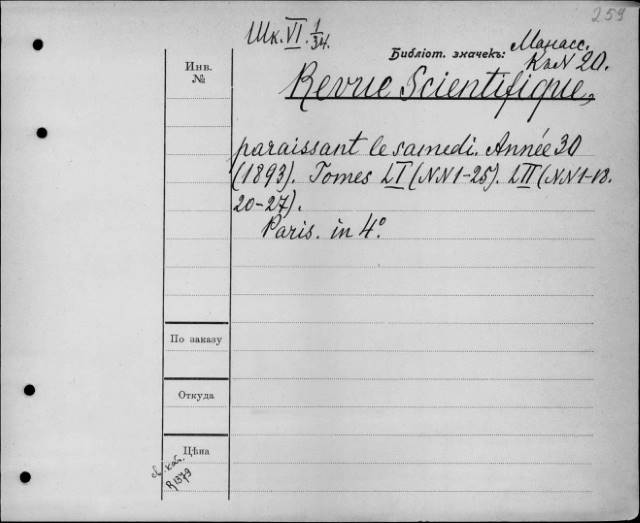 259
Шк. VI. 1/34.
Библіот. значекъ: Манасс.
К. N 20.
Инв.
№
Revue Scientifique,
paraissant le samedi. Année 30
(1893). Tomes LI (NN 1-25). LII (NN 1-18.
20-27).
Paris. in 4°.
По заказу
Откуда
Цѣна
каб.
R1379